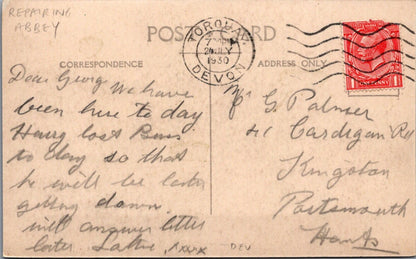 REPAIRING
ABBEY
POST CARD
TORQUAY
JLY
1930
DEVON
CORRESPONDENCE
ADDRESS ONLY
Dear George We have
been here to day
Harry lost Bus
to day so that
he will be later
getting down
will answer letter
later.
xxxx
DEV
Mr G. Palmer
41 Cardigan Rd
Kingston
Portsmouth
Hants